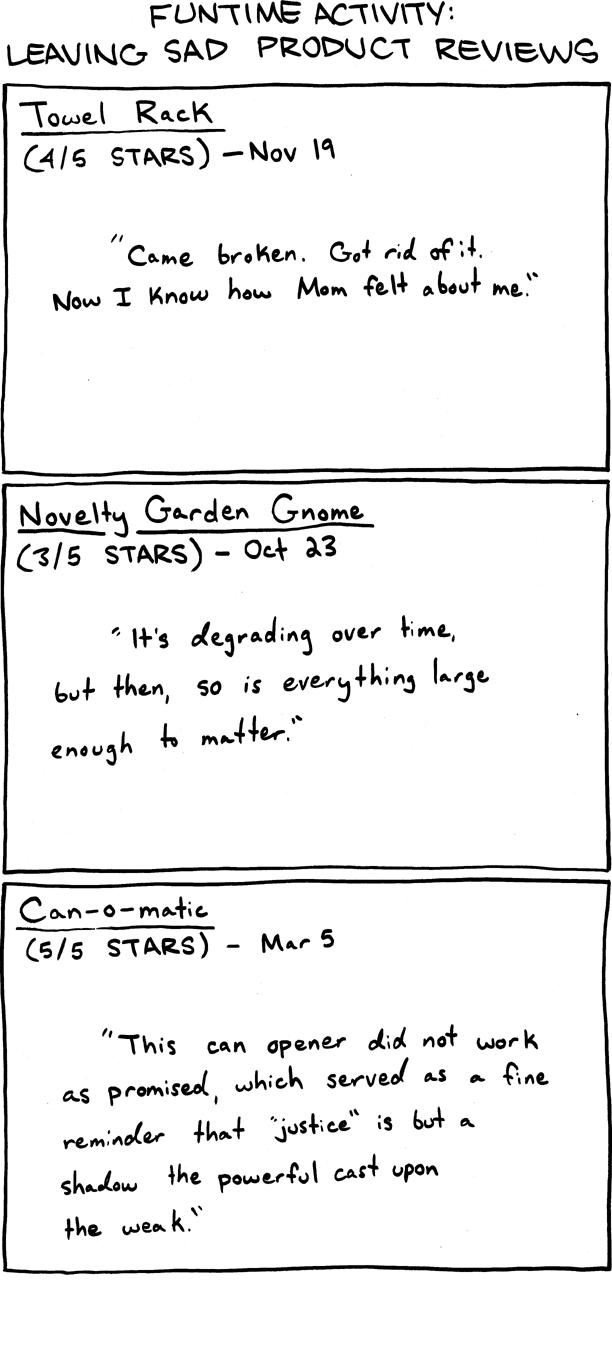 FUNTIME ACTIVITY:
LEAVING SAD PRODUCT REVIEWS
Towel Rack
(4/5 STARS) - Nov 19
"Came broken. Got rid of it.
Now I know how Mom felt about me."
Novelty Garden Gnome
(3/5 STARS) - Oct 23
"It's degrading over time,
but then, so is everything large
enough to matter."
Can-o-matic
(5/5 STARS) - Mar 5
"This can opener did not work
as promised, which served as a fine
reminder that "justice" is but a
shadow the powerful cast upon
the weak."